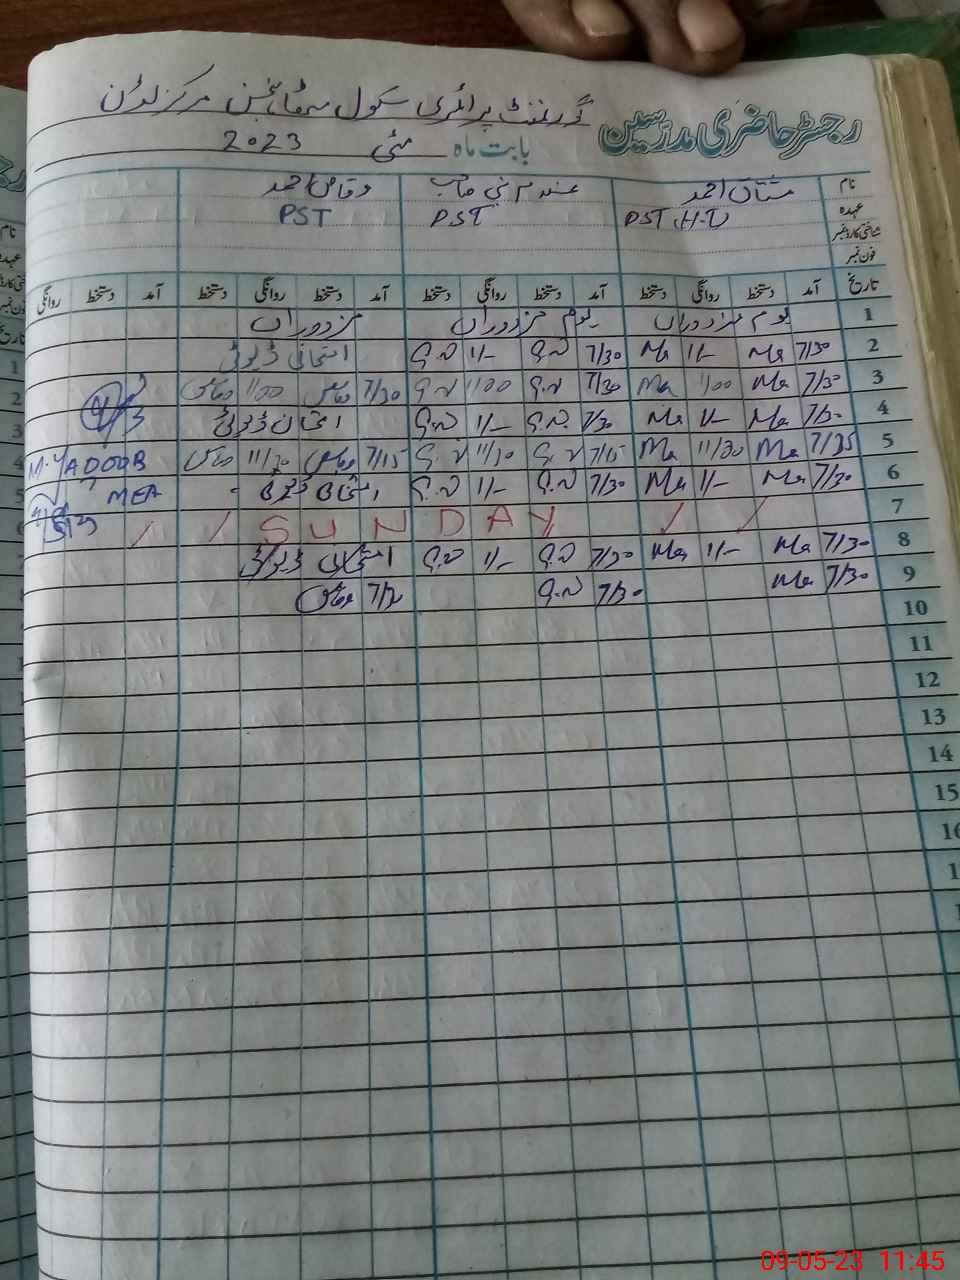 رجسٹر حاضری مدرسین گورنمنٹ پرائمری سکول مرکز لڈن
بابت ماہ مئی 2023
نام مشتاق احمد غلام نبی وقاص احمد
عہدہ PST H.T PST PST
شناختی کارڈ نمبر
فون نمبر
تاریخ آمد دستخط روانگی دستخط آمد دستخط روانگی دستخط آمد دستخط روانگی دستخط آمد دستخط روانگی
1 یوم مزدوراں یوم مزدوراں مزدوراں
2 7/30 Ma 1/- Ma 7/30 غ.ن 1/- غ.ن امتحانی ڈیوٹی
3 7/30 Ma 1/00 Ma 7/30 غ.ن 11/00 غ.ن 7/30 وقاص 11/00 وقاص
4 7/30 Ma 1/- Ma 7/30 غ.ن 1/- غ.ن امتحانی ڈیوٹی
5 Ma Ma 7/15 غ.ن 11/30 غ.ن 7/15 وقاص 11/30 وقاص M. YAQOOB
6 7/30 Ma 1/- Ma 7/30 غ.ن 1/- غ.ن امتحانی ڈیوٹی MEA
7 SUNDAY
8 7/30 Ma 1/- Ma 7/30 غ.ن 1/- غ.ن امتحانی ڈیوٹی
9 7/30 Ma 7/30 غ.ن وقاص
10
11
12
13
14
15
09-05-23 11:45